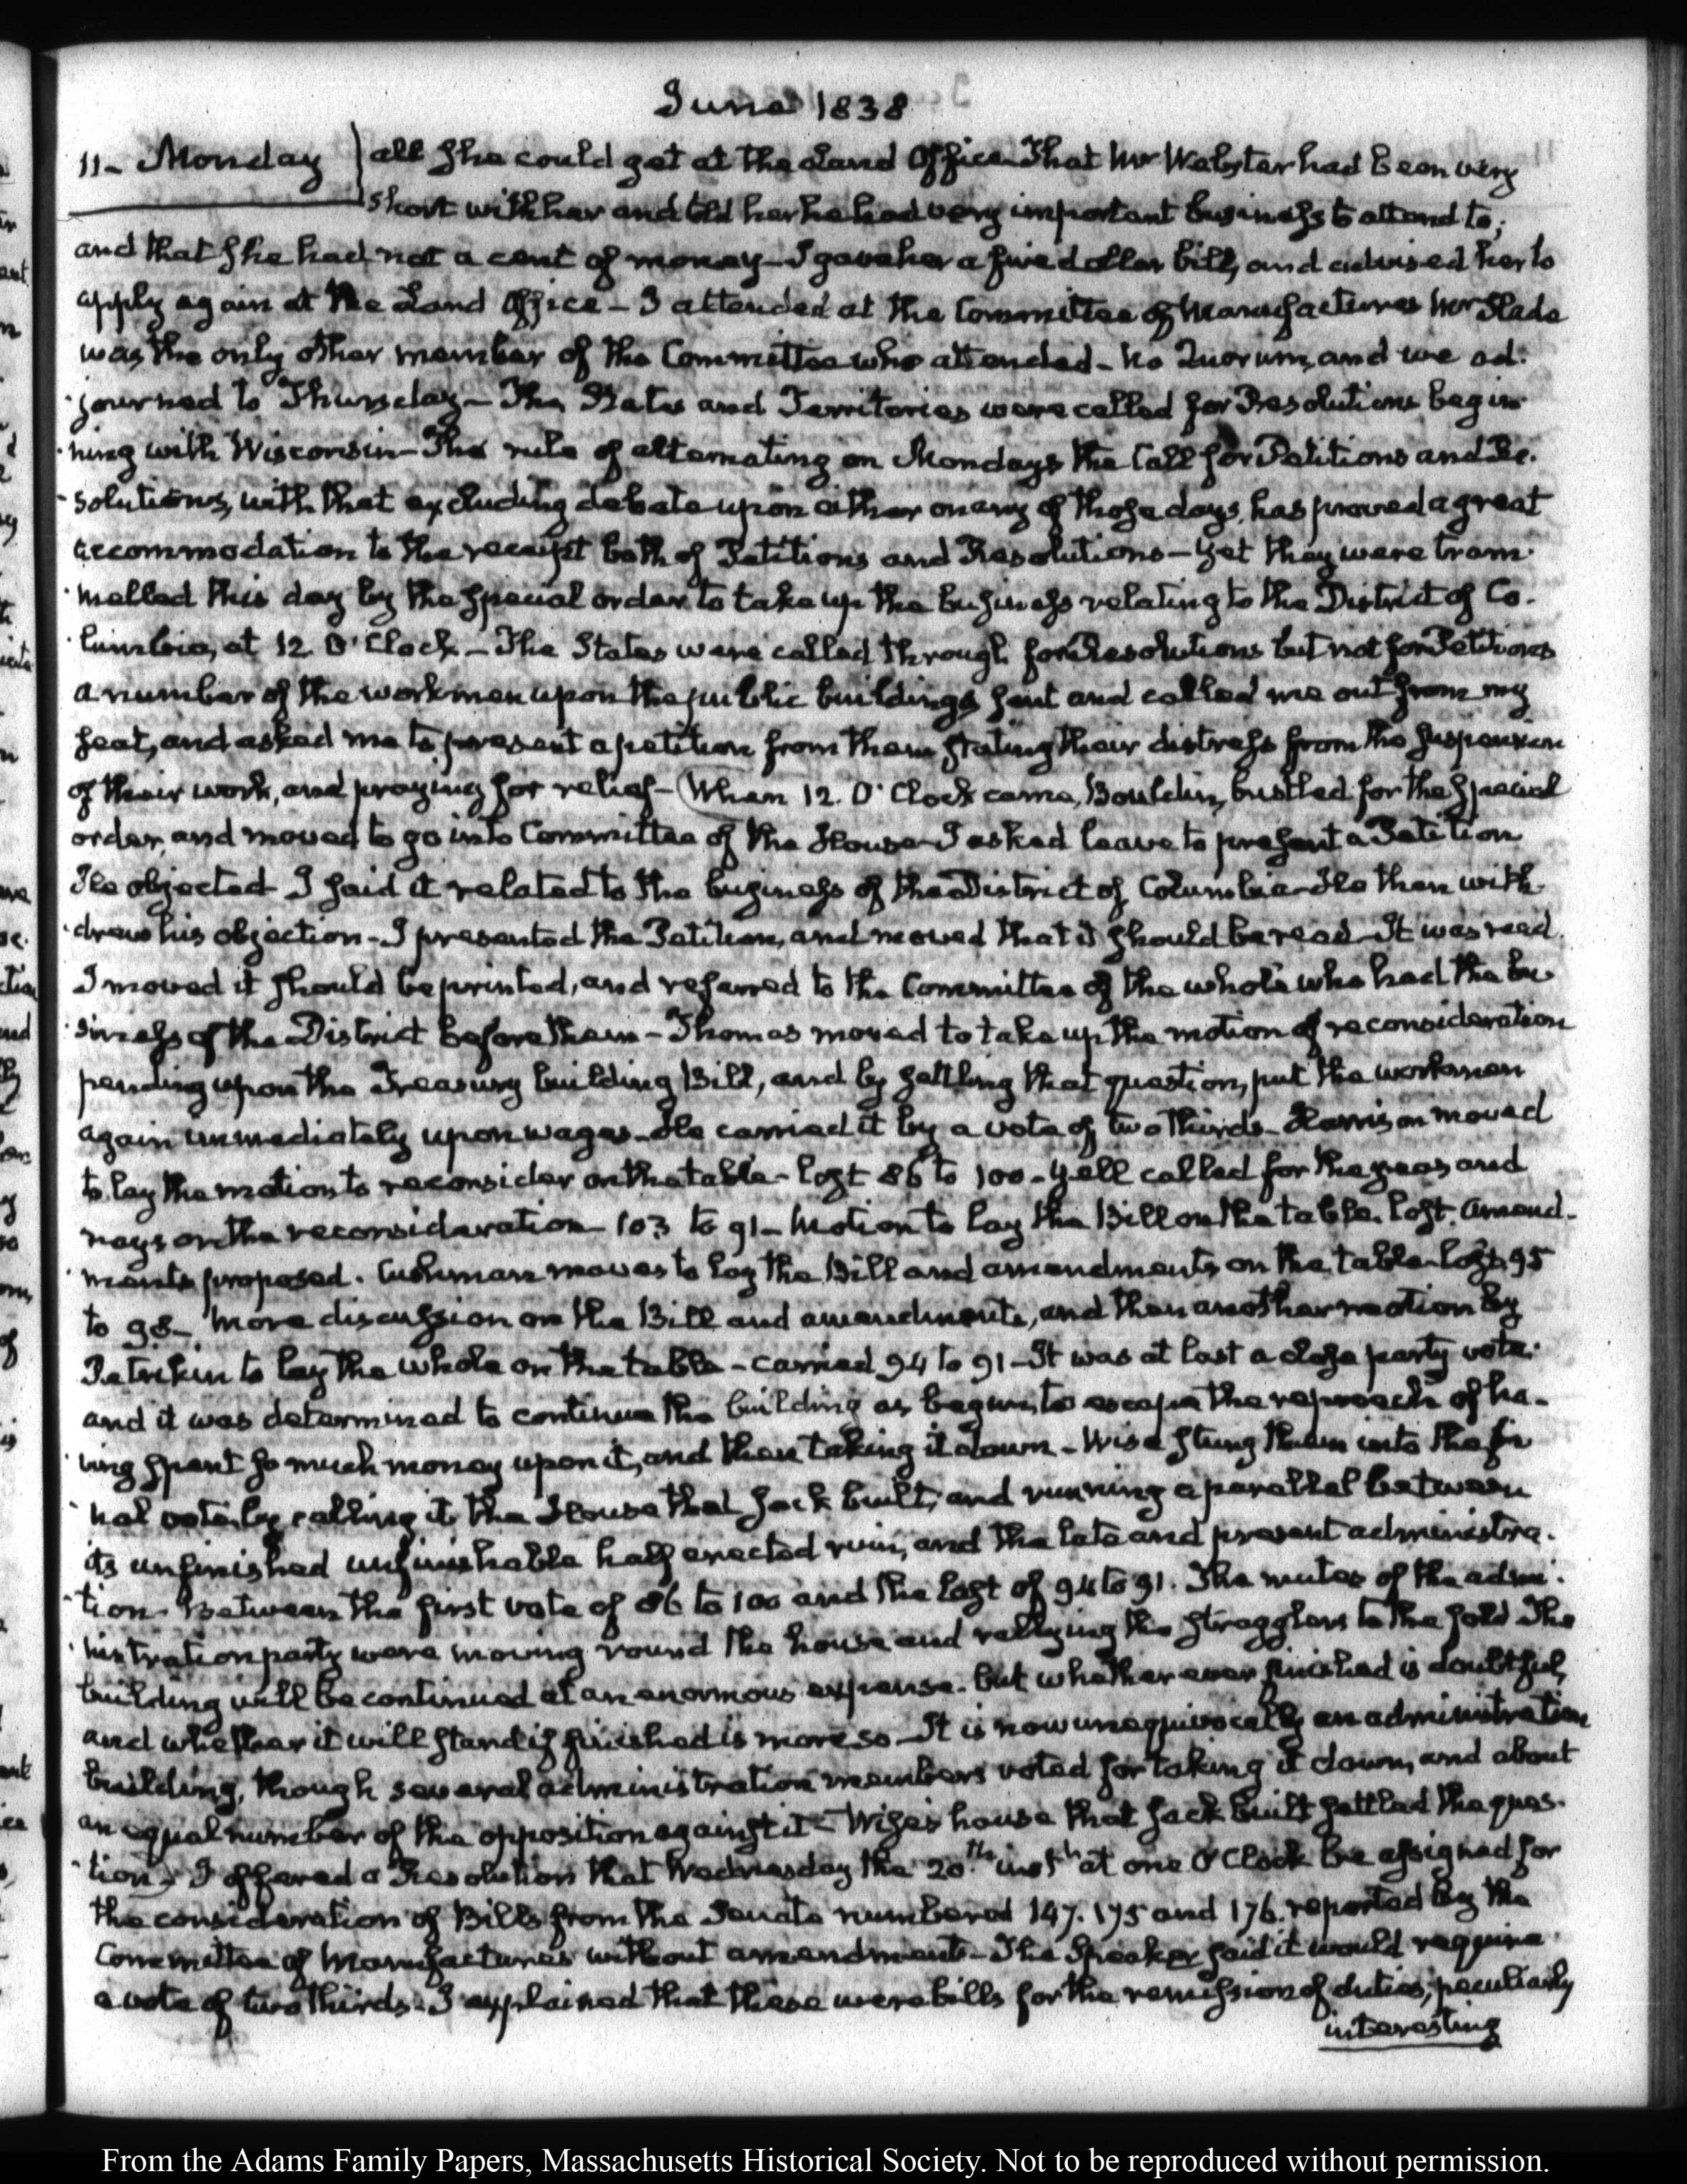 June 1838
11- Monday } all she could get at the Land Office—That Mr Webster had been very
short with her and told her he had very important business to attend to;
and that she had not a cent of money—I gave her a five dollar bill, and advised her to
apply again at the Land Office—I attended at the Committee of Manufactures Mr Slade
was the only other member of the Committee who attended—No Quorum, and we ad-
journed to Thursday—The States and Territories were called for Resolutions begin-
ning with Wisconsin—The rule of alternating on Mondays the Call for Petitions and Re-
solutions, with that excluding debate upon either on any of those days, has proved a great
accommodation to the receipt both of Petitions and Resolutions—yet they were tram-
melled this day by the special order to take up the business relating to the District of Co-
lumbia, at 12 O'Clock—The States were called through for Resolutions but not for Petitions
a number of the workmen upon the public buildings sent and called me out from my
seat, and asked me to present a petition from them stating their distress from the suspension
of their work, and praying for relief—(When 12. O'Clock came, Bouldin, bustled for the special
order, and moved to go into Committee of the House—I asked leave to present a Petition
He objected I said it related to the business of the District of Columbia—He then with-
drew his objection—I presented the Petition, and moved that it should be read—It was read.
I moved it should be printed, and referred to the Committee of the whole who had the bu-
siness of the District before them—Thomas moved to take up the motion of reconsideration
pending upon the Treasury building Bill, and by settling that question, put the workmen
again immediately upon wages—He carried it by a vote of two thirds—Harrison moved
to lay the motion to reconsider on the table—lost 86 to 100—Yell called for the yeas and
nays on the reconsideration—103 to 91—Motion to lay the Bill on the table. lost. Amend-
ments proposed. Cushman moves to lay the Bill and amendments on the table—lost 95
to 98—More discussion on the Bill and amendments, and then another motion by
Petrikin to lay the whole on the table—carried 94 to 91—It was at last a close party vote.
and it was determined to continue the building as begun, to escape the reproach of ha-
ving spent so much money upon it, and then taking it down—Wise stung them into the fi-
nal vote, by calling it the House that Jack built, and running a parallel between
its unfinished unfinishable half erected ruin, and the late and present administra-
tion. Between the first vote of 86 to 100 and the last of 94 to 91. The mutes of the admi-
nistration party were moving round the house and rallying the stragglers to the fold The
building will be continued at an enormous expense. but whether ever finished is doubtful,
and whether it will stand if finished is more so—It is now unequivocally an administration
building, though several administration members voted for taking it down, and about
an equal number of the opposition against it—Wise's house that Jack built settled the ques-
tion) I offered a Resolution that Wednesday the 20th instt at one O'Clock be assigned for
the consideration of Bills from the Senate numbered 147. 175 and 176. reported by the
Committee of Manufactures without amendment—The Speaker said it would require
a vote of two thirds—I explained that these were bills for the remission of duties, peculiarly
interesting
From the Adams Family Papers, Massachusetts Historical Society. Not to be reproduced without permission.